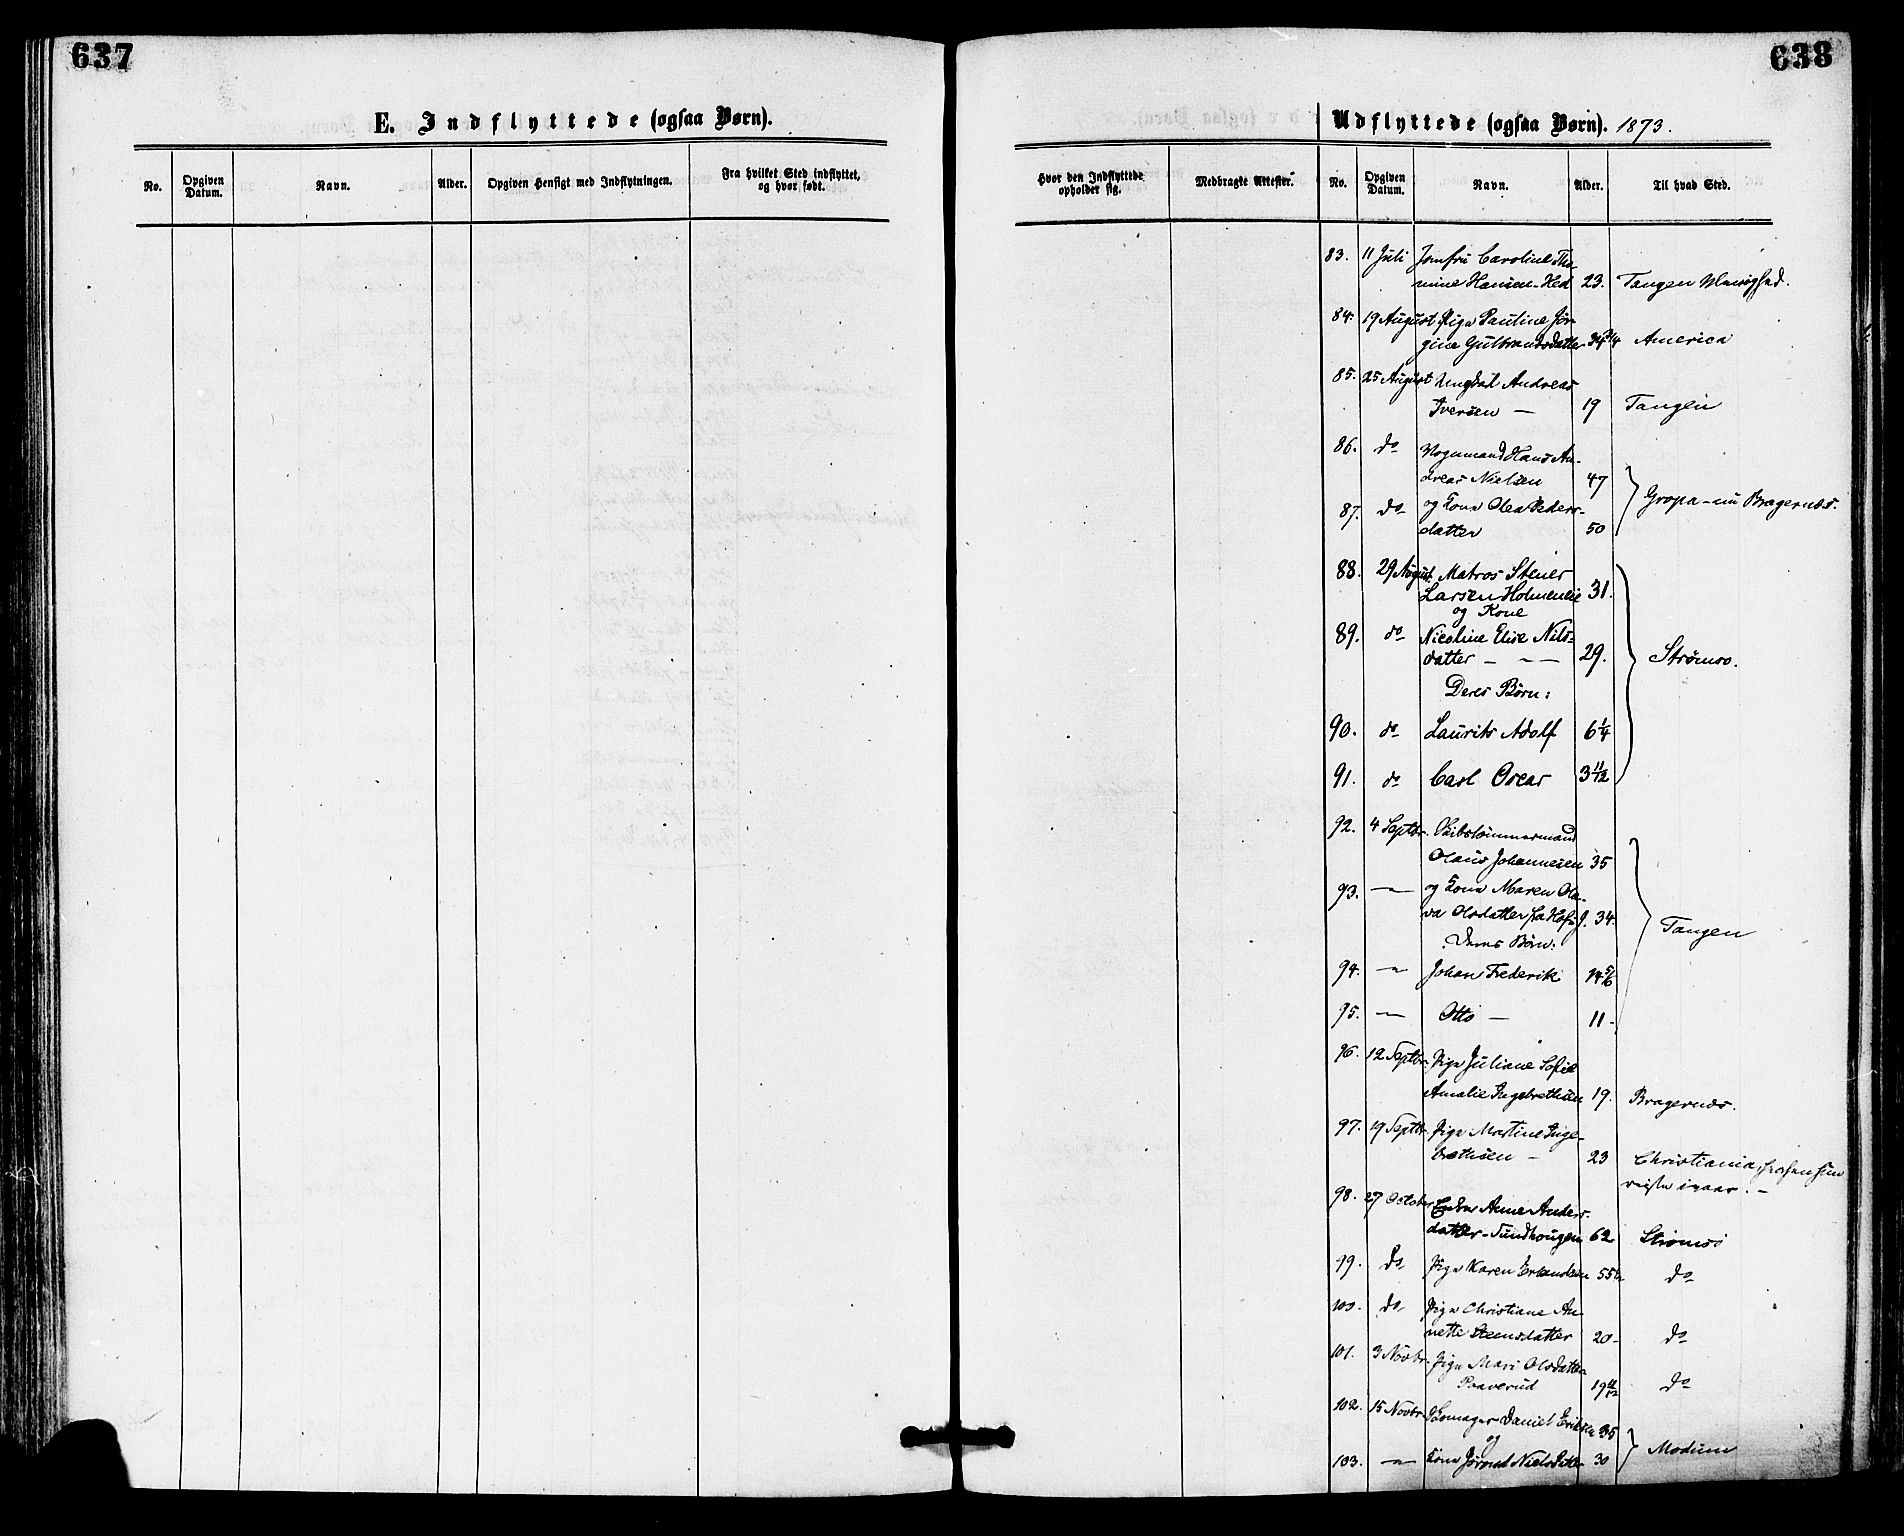 637
E. Indflyttede (ogsaa Børn).
No.
Opgiven Datum.
Navn.
Alder.
Opgiven Hensigt med Indflytningen.
Fra hvilket Sted indflyttet, og hvor født.
638
Udflyttede (ogsaa Børn). 1873.
Hvor den Indflyttede opholder sig.
Medbragte Attester.
No.
Opgiven Datum.
Navn.
Alder.
Til hvad Sted.
83. 11 Juli Jomfru Caroline Tho-
mine Hansen-Hed 23. Tangen
84. 19 August Pige Pauline Jør-
gine Gulbrandsdatter America
85. 25 August Ungkarl Andreas
Iversen — 19 Tangen
86. do Vognmand Hans An-
dreas Nielsen 47
87. do og Kone Olea Peders-
datter 50 Gropa-nu Bragernæs.
88. 29 August Matros Stener
Larsen Holmenlie 31.
og Kone
89. do Nicoline Elise Nils-
datter — — 29. Strømsø.
Deres Børn:
90. do Laurits Adolf 6 1/4
91. do Carl Oscar 3 11/12
92. 4 Septbr. Skibstømmermand
Olaus Johannesen 35
93. — og Kone Maren Ola-
va Olsdatter 34.
Deres Børn: Tangen
94. — Johan Frederik 14 5/6
95. — Otto — 11 -
96. 12 Septbr. Pige Juliane Sofie
Amalie Ingebrethsen 19. Bragernæs.
97. 19 Septbr. Pige Martine Inge-
brethsen — 23 Christiania,
reiste ivaar. —
98. 27 October Enke Anne Anders-
datter-Sundhougen 62 Strømsø
99. do Pige Karen Erlandsen 55 do
100. do Pige Christiane An-
nette Steensdatter 20 - do
101. 3 Novbr. Pige Mari Olsdatter
Paaverud 19 11/12 do
102. 15 Novbr. Skomager Daniel Eriksen 35
og
103. — Kone Jørand Nielsdatter 30 Modum